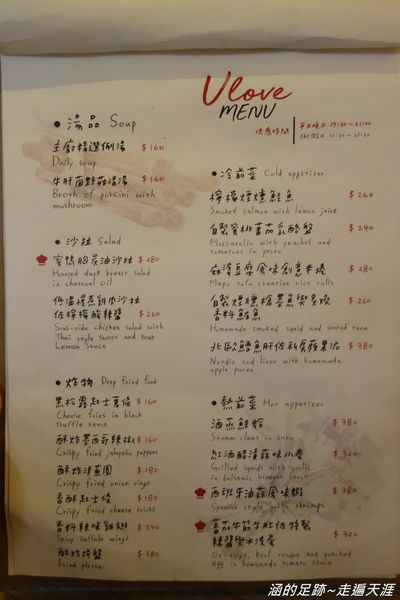 Vlove
MENU
供應時間
平日晚上 17:30~21:00
● 湯品 Soup
主廚精選例湯 $160
Daily soup
牛肝菌野菇清湯 $160
Broth of porcini with
mushroom
● 沙拉 Salad
蜜鴨胸炭油沙拉 $280
Honeyed duck breast salad
in charcoal oil
低溫裸煮雞肉沙拉
佐檸檬酸辣醬 $260
Sous-vide chicken salad with
Thai style sweet and sour
Lemon sauce
● 炸物 Deep fried food
黑松露起士薯條 $160
Cheese fries in black
truffle sauce
酥炸墨西哥辣椒 $160
Crispy fried jalapeño peppers
酥炸洋蔥圈 $180
Crispy fried onion rings
香酥起士條 $180
Crispy fried cheese sticks
香料辣味雞翅 $240
Spicy buffalo wings
酥炸拼盤 $380
Fried platter
● 冷前菜 Cold appetizer
檸檬煙燻鮭魚 $260
Smoked salmon with lemon juice
自製蜜桃蕃茄乳酪盤 $240
Mozzarella with peaches and
tomatoes in pesto
麻婆豆腐風味創意米捲 $280
Mapo tofu creative rice rolls
自製煙燻槍墨魚與炙燒 $260
香料鮪魚
Homemade smoked squid and seared tuna
北歐鱈魚肝佐私房蘋果泥 $380
Nordic cod liver with homemade
apple puree
● 熱前菜 Hot appetizer
酒蒸鮮蛤 $380
Steam clams in sake
紅酒醋漬蒜味小卷 $320
Grilled squids with garlic
in balsamic vinegar sauce
西班牙油蒜風味蝦 $380
Spanish style garlic shrimps
蕃茄牛筋牛肚佐特製 $320
辣醬與水波蛋
Ox-tripe, beef tendon and poached
egg in homemade tomato sauce
涵的足跡~走遍天涯